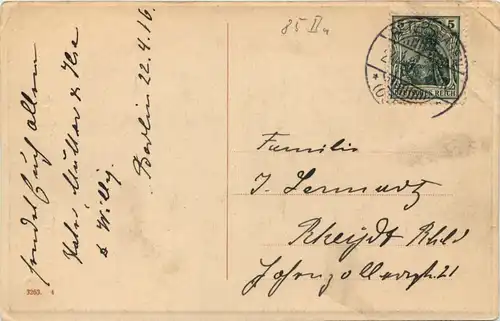 sendet Euch allen
Mutter & Ilse
& Willy.
Berlin 22.4.16.
85 II a
5 5
REICH
Familie
J. Lennartz
Rheydt Rhld
Hohenzollernstr. 21
3203. 4